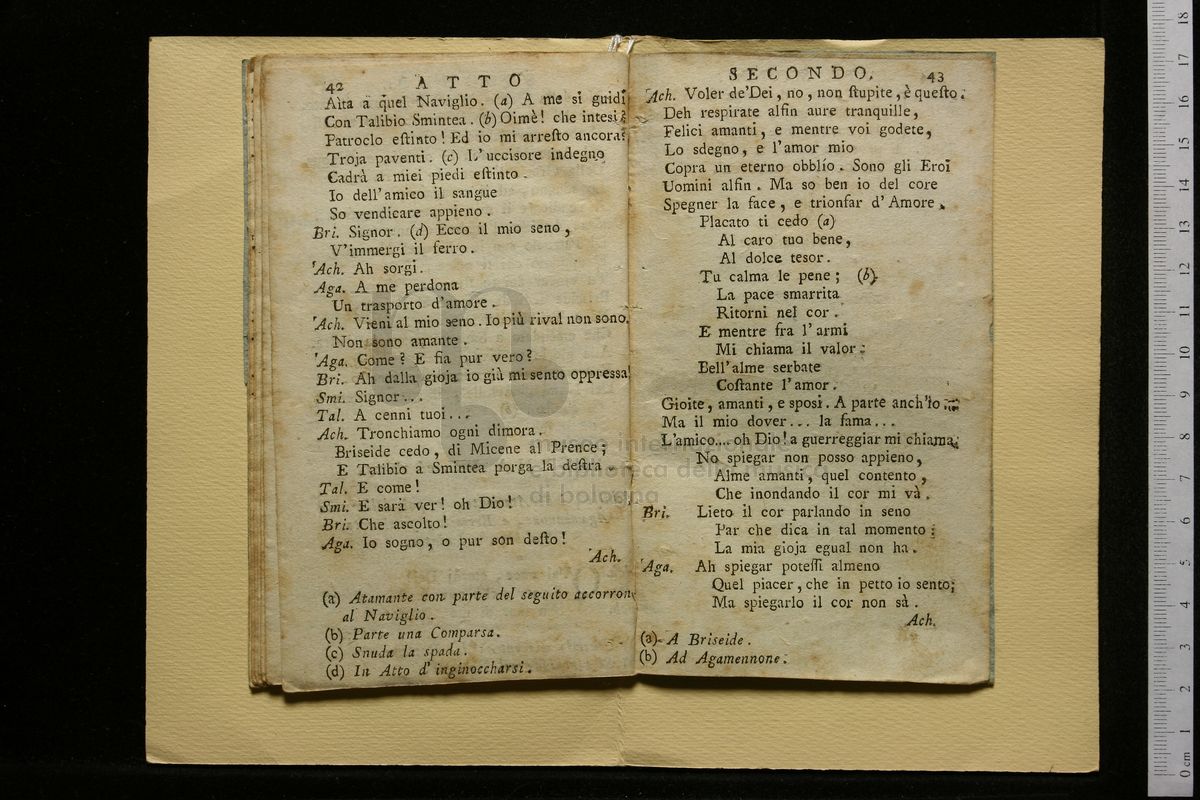 42 ATTO
Aita a quel Naviglio. (a) A me si guidi
Con Talibio Smintea. (b) Oimè! che intesi?
Patroclo eſtinto! Ed io mi arreſto ancora?
Troja paventi. (c) L'uccisore indegno
Cadrà a miei piedi eſtinto.
Io dell'amico il sangue
So vendicare appieno.
Bri. Signor. (d) Ecco il mio seno,
V'immergi il ferro.
Ach. Ah sorgi.
Aga. A me perdona
Un trasporto d'amore.
Ach. Vieni al mio seno. Io più rival non sono.
Non sono amante.
Aga. Come? E fia pur vero?
Bri. Ah dalla gioja io già mi sento oppressa!
Smi. Signor...
Tal. A cenni tuoi...
Ach. Tronchiamo ogni dimora.
Briseide cedo, di Micene al Prence;
E Talibio a Smintea porga la deſtra.
Tal. E come!
Smi. E sarà ver! oh Dio!
Bri. Che ascolto!
Aga. Io sogno, o pur son deſto!
Ach.
(a) Atamante con parte del seguito accorrono
al Naviglio.
(b) Parte una Comparsa.
(c) Snuda la spada.
(d) In Atto d'inginoccharsi.
SECONDO. 43
Ach. Voler de'Dei, no, non ſtupite, è queſto.
Deh respirate alfin aure tranquille,
Felici amanti, e mentre voi godete,
Lo sdegno, e l'amor mio
Copra un eterno obblío. Sono gli Eroi
Uomini alfin. Ma so ben io del core
Spegner la face, e trionfar d'Amore.
Placato ti cedo (a)
Al caro tuo bene,
Al dolce tesor.
Tu calma le pene; (b)
La pace smarrita
Ritorni nel cor.
E mentre fra l'armi
Mi chiama il valor:
Bell'alme serbate
Coſtante l'amor.
Gioite, amanti, e sposi. A parte anch'io
Ma il mio dover... la fama...
L'amico.... oh Dio! a guerreggiar mi chiama;
No spiegar non posso appieno,
Alme amanti, quel contento,
Che inondando il cor mi và.
Bri. Lieto il cor parlando in seno
Par che dica in tal momento:
La mia gioja egual non ha.
Aga. Ah spiegar poteſſi almeno
Quel piacer, che in petto io sento;
Ma spiegarlo il cor non sà.
Ach.
(a) A Briseide.
(b) Ad Agamennone.
museo internazionale
e biblioteca della musica
di bologna
0 cm 1 2 3 4 5 6 7 8 9 10 11 12 13 14 15 16 17 18